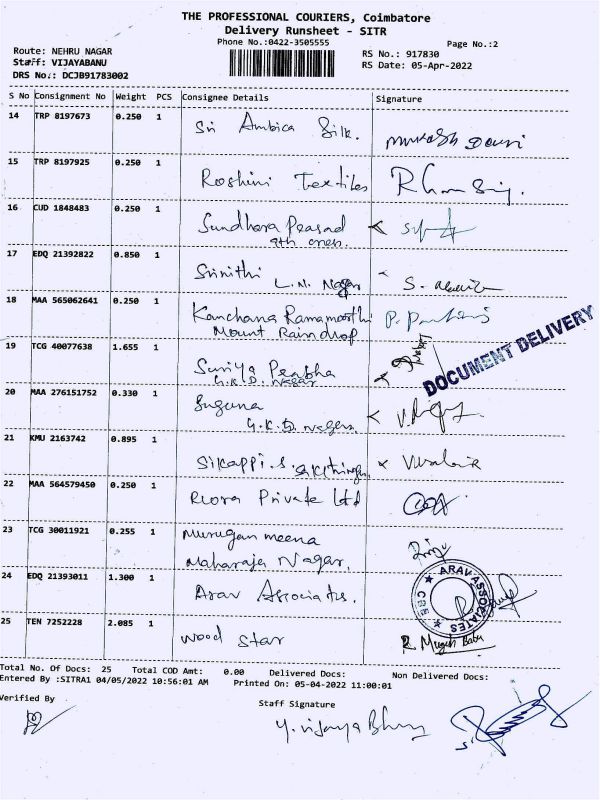 THE PROFESSIONAL COURIERS, Coimbatore
Delivery Runsheet - SITR
Phone No.:0422-3505555
Page No.:2
Route: NEHRU NAGAR
RS No.: 917830
Staff: VIJAYABANU
RS Date: 05-Apr-2022
DRS No.: DCJB91783002
S No Consignment No Weight PCS Consignee Details Signature
14 TRP 8197673 0.250 1 Sri Ambica Silk.
15 TRP 8197925 0.250 1 Roshini Textiles
16 CUD 1848483 0.250 1 Sundhara Prasad
17 EDQ 21392822 0.850 1 Srinithi
L.N. Nagar
18 MAA 565062641 0.250 1 Kanchana Ramamoorthi
Mount Raindrop
19 TCG 40077638 1.655 1 Suriya Prabha
G.K.D. Nagar
DOCUMENT DELIVERY
20 MAA 276151752 0.330 1 Suguna
G.K.D. Nagar
21 KMU 2163742 0.895 1 Sikappi.S.
22 MAA 564579450 0.250 1 Private Ltd
23 TCG 30011921 0.255 1 Murugan meena
Maharaja Nagar.
24 EDQ 21393011 1.300 1 Arav Associates.
ARAV ASSOCIATES
CBE
25 TEN 7252228 2.085 1 Wood Star
Total No. Of Docs: 25 Total COD Amt: 0.00 Delivered Docs: Non Delivered Docs:
Entered By :SITRA1 04/05/2022 10:56:01 AM Printed On: 05-04-2022 11:00:01
Verified By
Staff Signature